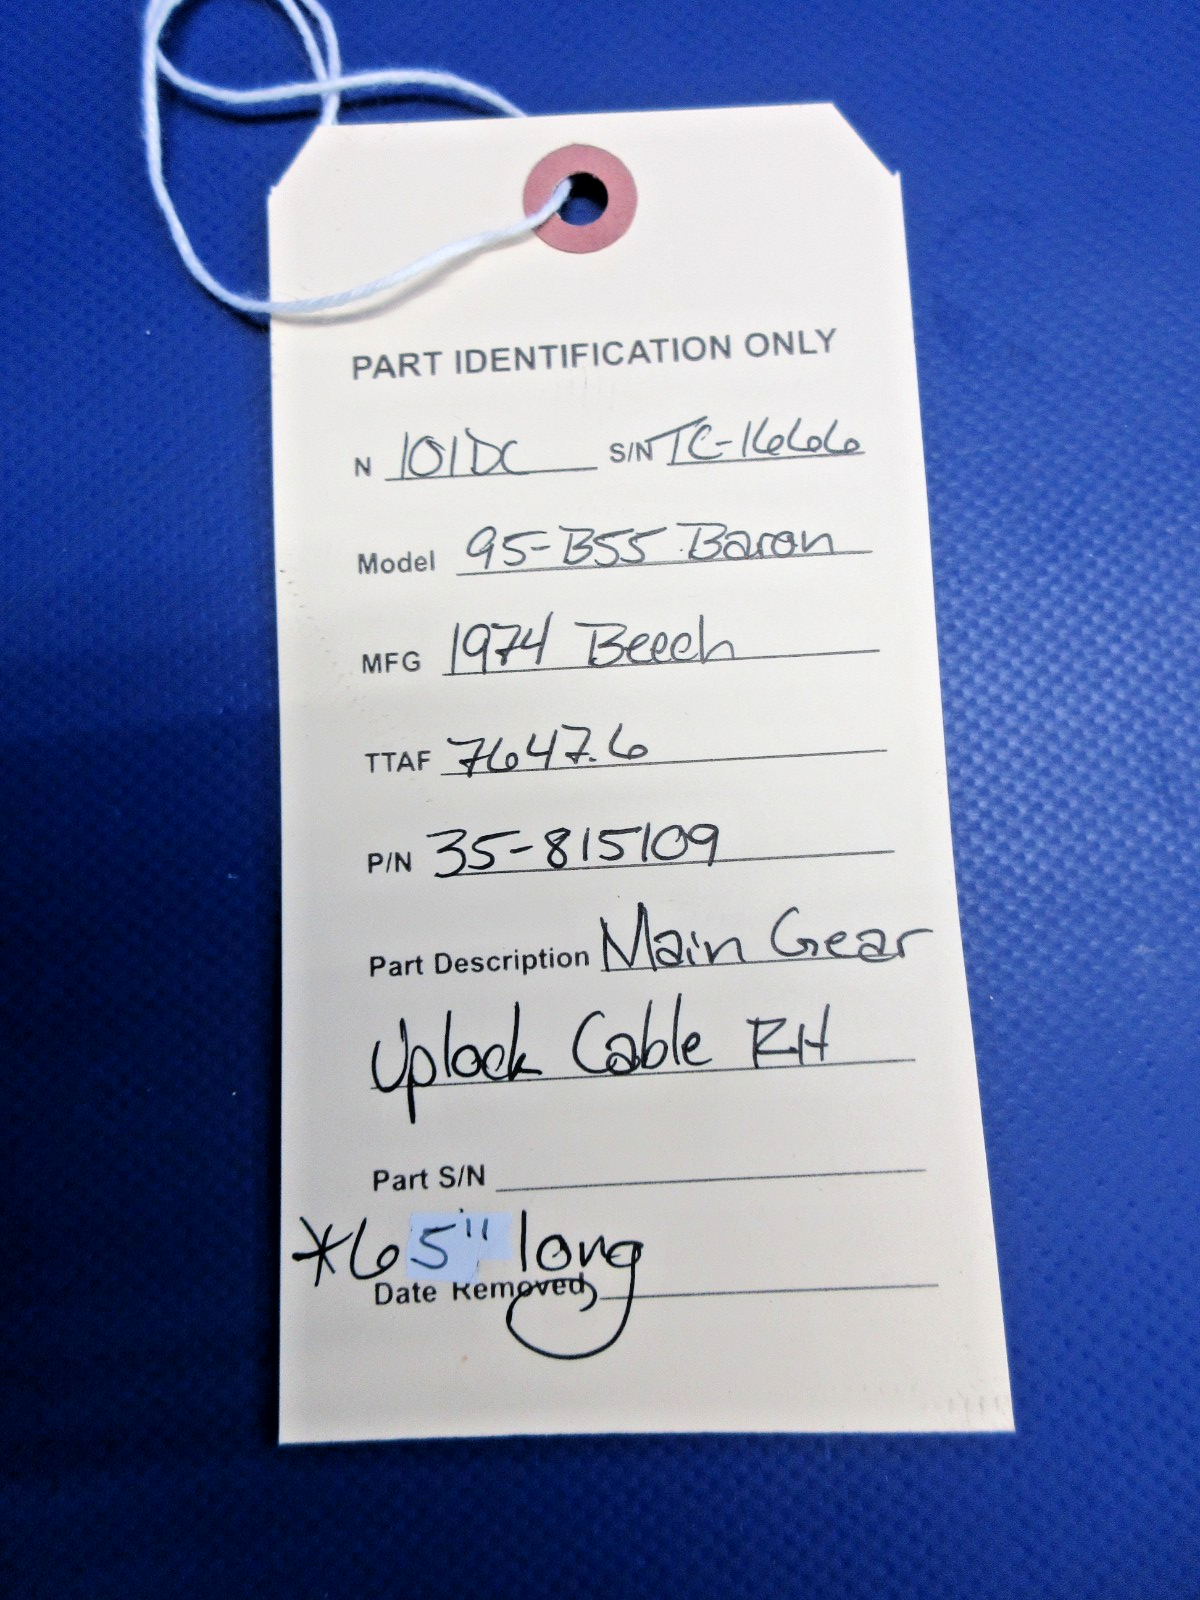 PART IDENTIFICATION ONLY
N 101DC S/N TC-1666
Model 95-B55 Baron
MFG 1974 Beech
TTAF 7647.6
P/N 35-815109
Part Description Main Gear
Uplock Cable RH
Part S/N
*65" long
Date Removed